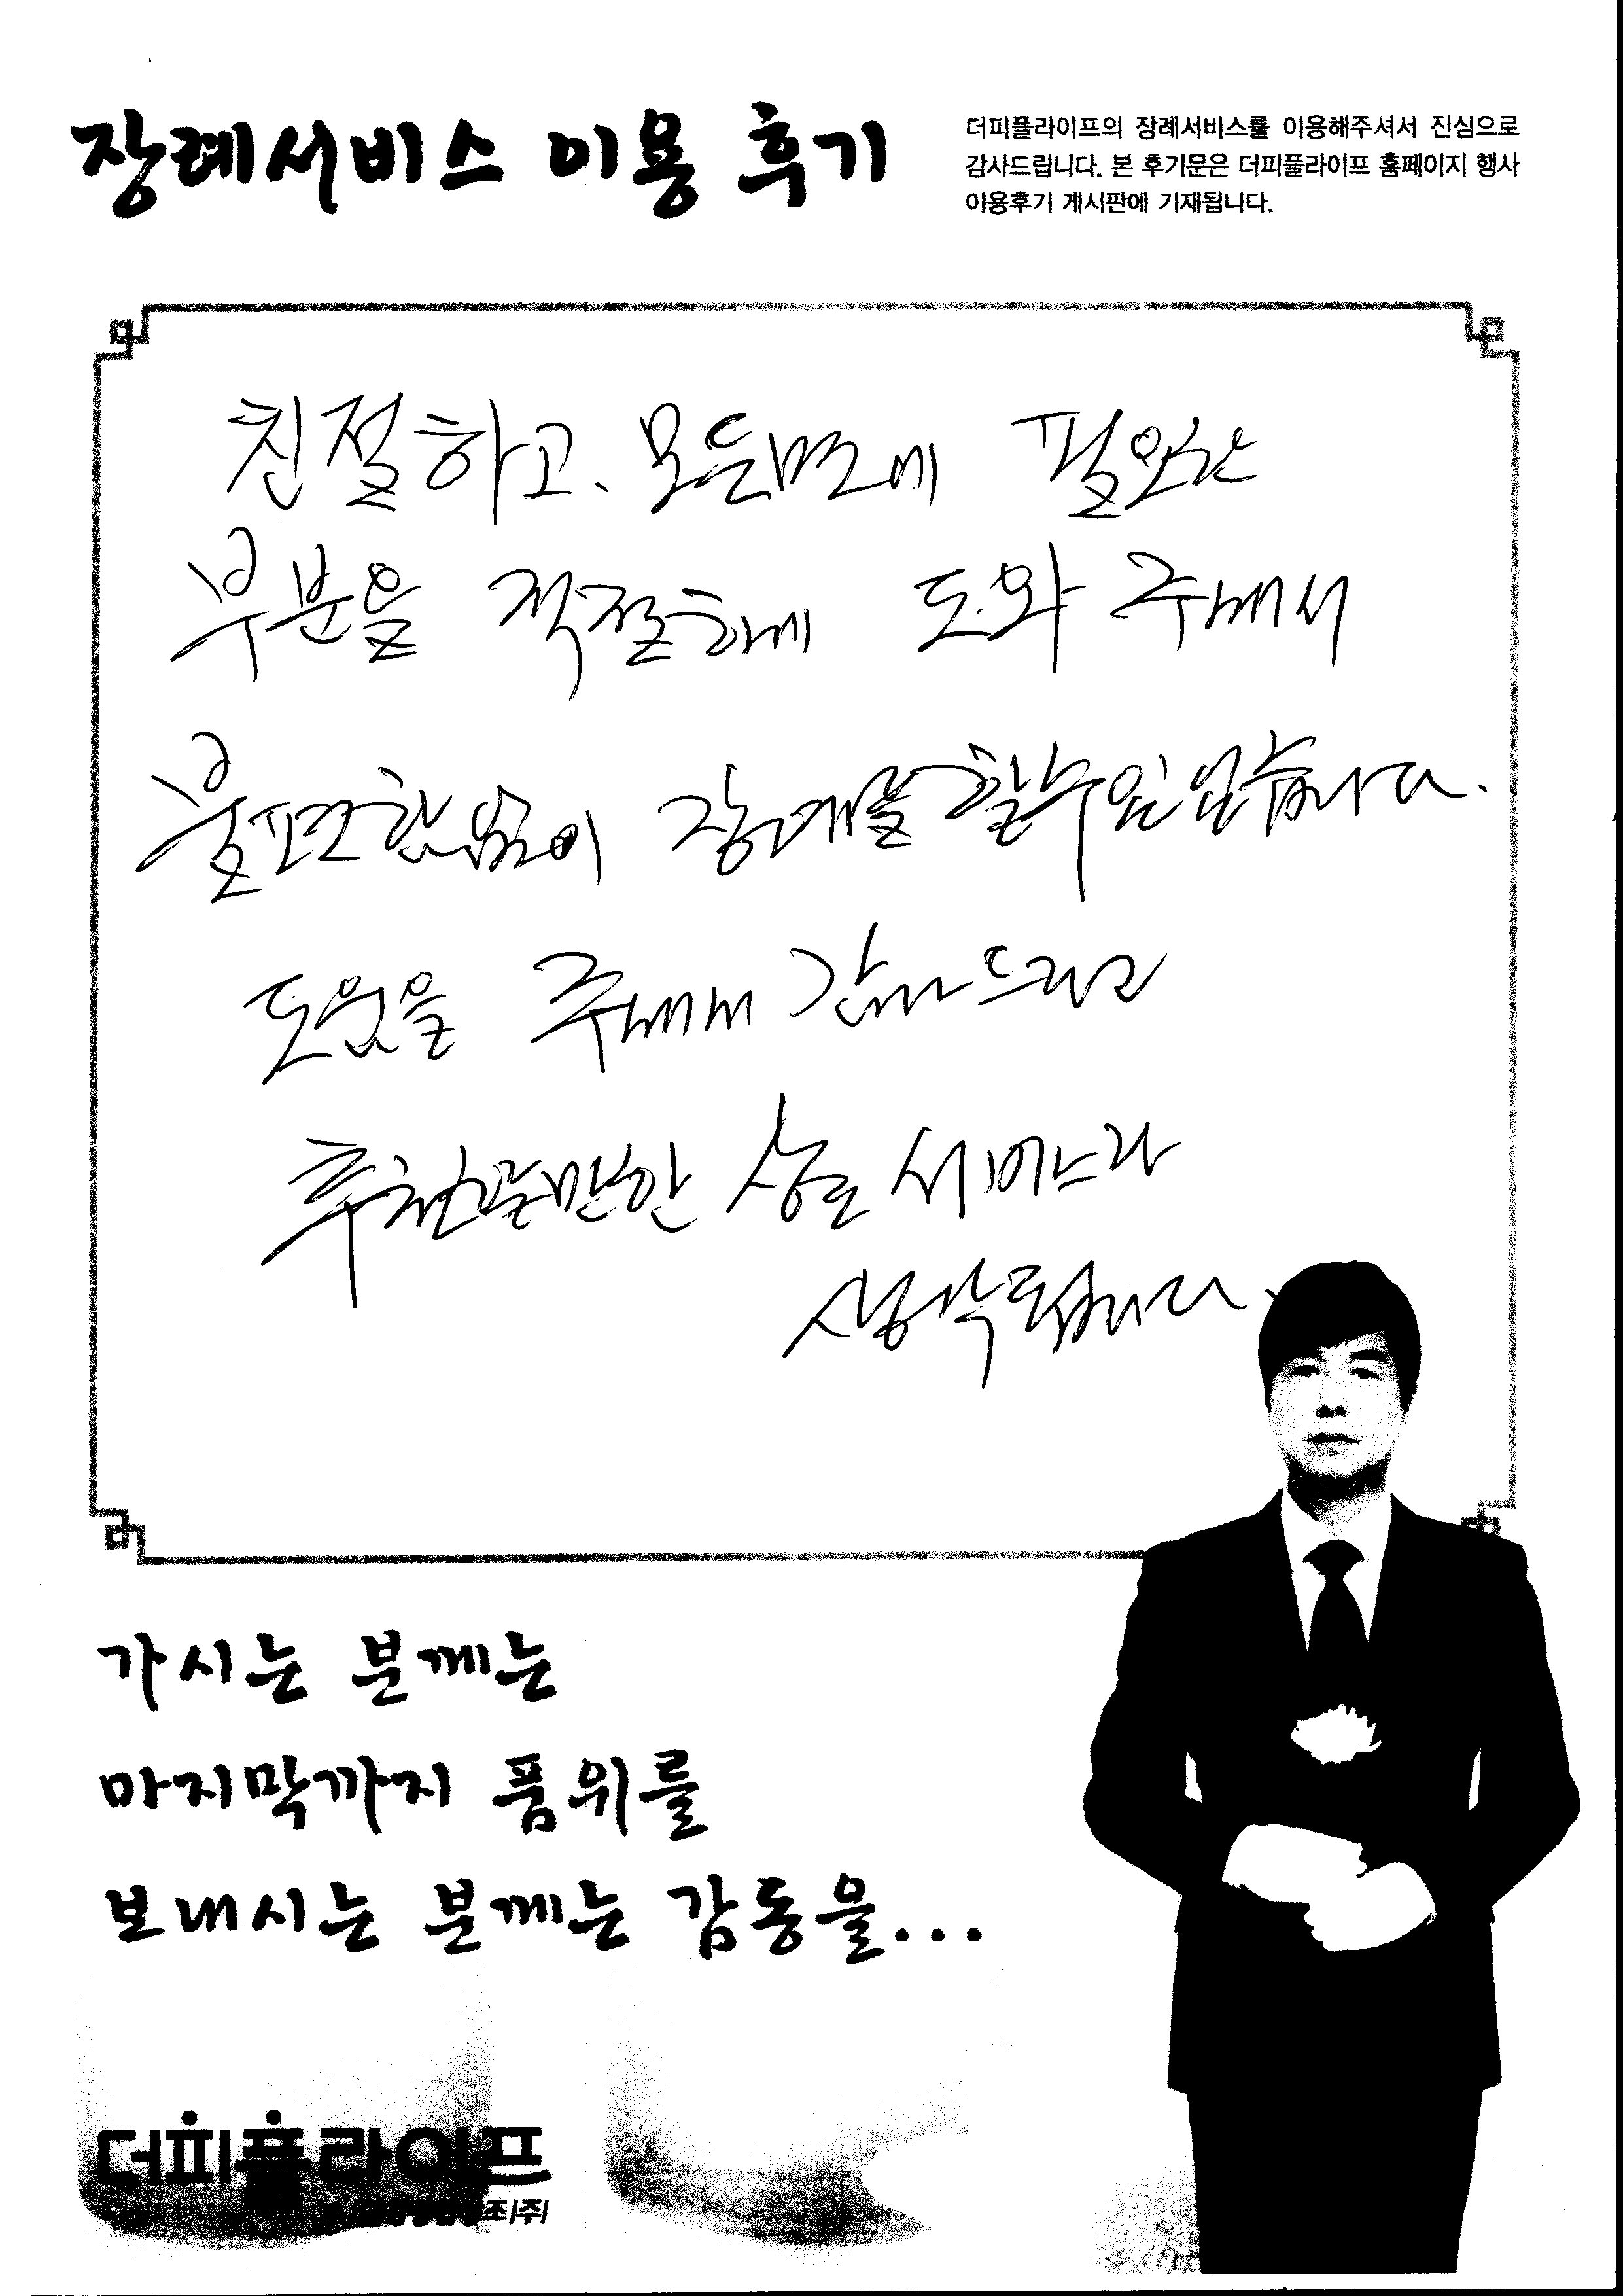 장례서비스 이용 후기
더피플라이프의 장례서비스를 이용해주셔서 진심으로
감사드립니다. 본 후기문은 더피플라이프 홈페이지 행사
이용후기 게시판에 기재됩니다.
친절하고. 모든면에 필요한
부분을 적절하게 도와 주셔서
불편함없이 장례를 할수 있었습니다.
도움을 주셔서 감사드리고
추천할만한 상조 서비스라
생각됩니다.
가시는 분께는
마지막까지 품위를
보내시는 분께는 감동을...
더피플라이프